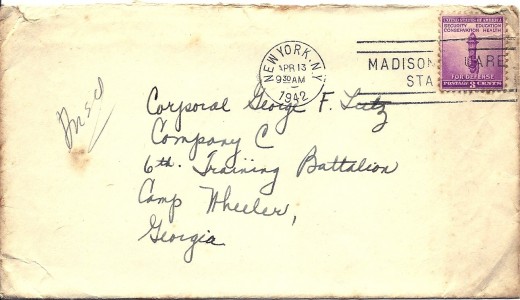 NEW YORK, N.Y.
APR 13
9 30 AM
1942
MADISON SQUARE
STA.
UNITED STATES OF AMERICA
SECURITY EDUCATION
CONSERVATION HEALTH
FOR DEFENSE
POSTAGE 3 CENTS
Corporal George F. Lutz
Company C
6th. Training Battalion
Camp Wheeler,
Georgia